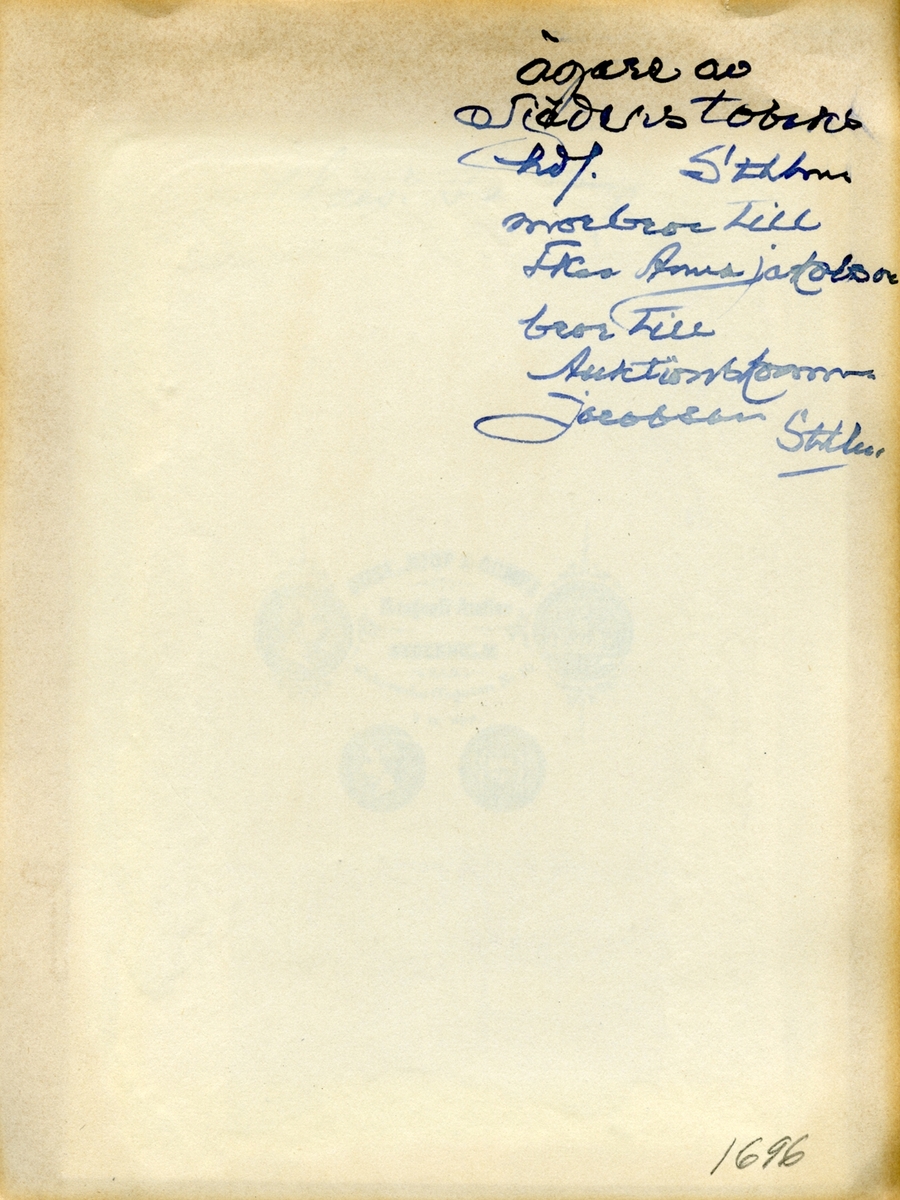 ägare av
hdf. Sthlm
morbror till
Fkn Anna jakobson
bror till
Auktionskomm
jacobson Sthlm.
1696